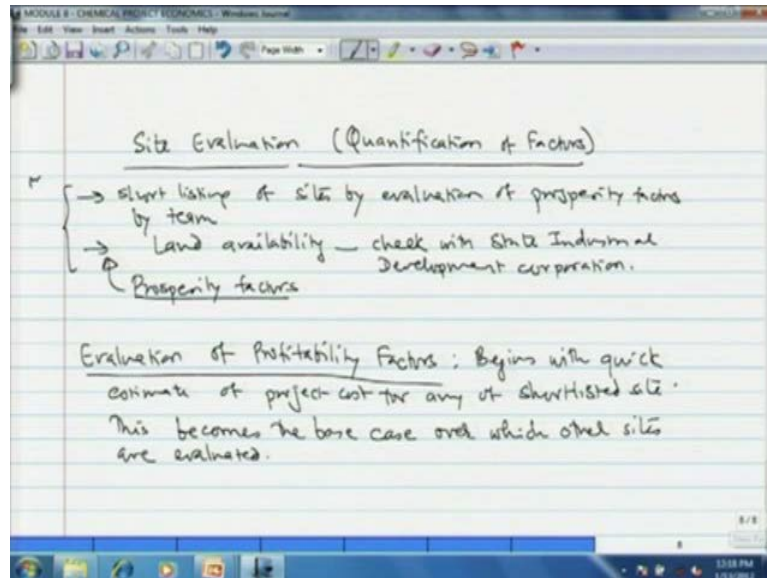 MODULE 8 - CHEMICAL PROJECT ECONOMICS - Windows Journal
File Edit View Insert Actions Tools Help
Page Width
Site Evaluation (Quantification of Factors)
→ Short listing of sites by evaluation of prosperity factors
by team
→ Land availability — check with State Industrial
Development corporation.
Prosperity factors
Evaluation of Profitability Factors : Begins with quick
estimate of project cost for any of shortlisted site.
This becomes the base case over which other sites
are evaluated.
8/8
8
12:18 PM